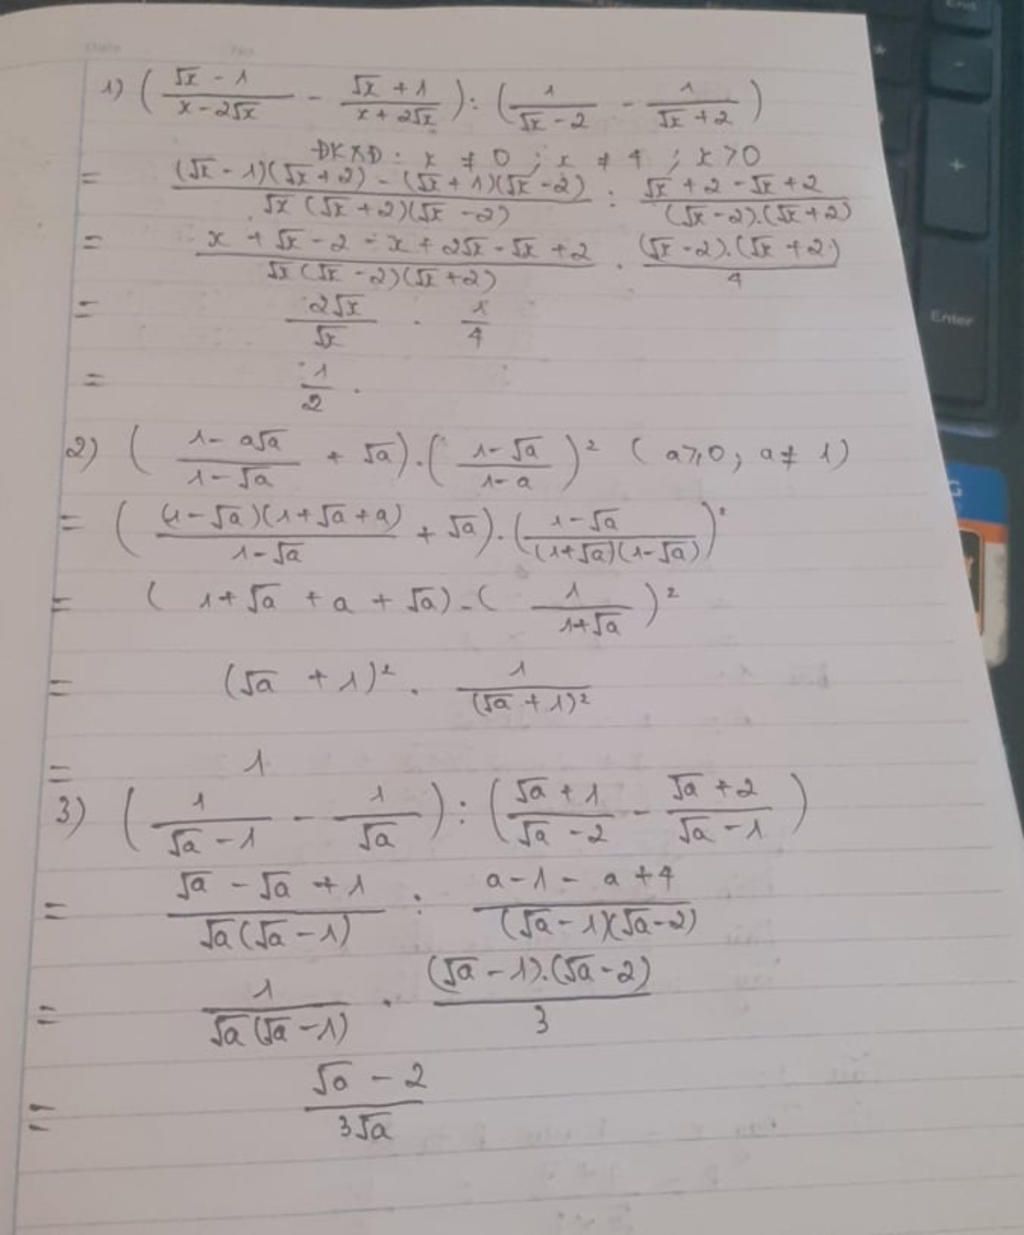 1) ( (√x - 1)/(x - 2√x) - (√x + 1)/(x + 2√x) ) : ( 1/(√x - 2) - 1/(√x + 2) )
ĐKXĐ : x ≠ 0 ; x ≠ 4 ; x > 0
= ((√x - 1)(√x + 2) - (√x + 1)(√x - 2))/(√x (√x + 2)(√x - 2)) : (√x + 2 - √x + 2)/((√x - 2).(√x + 2))
= (x + √x - 2 - x + 2√x - √x + 2)/(√x (√x - 2)(√x + 2)) . ((√x - 2).(√x + 2))/4
= 2√x/√x . 1/4
= 1/2 .
2) ( (1 - a√a)/(1 - √a) + √a ) . ( (1 - √a)/(1 - a) )² ( a ≥ 0 ; a ≠ 1 )
= ( ((1 - √a)(1 + √a + a))/(1 - √a) + √a ) . ( (1 - √a)/((1 + √a)(1 - √a)) )²
= ( 1 + √a + a + √a ) . ( 1/(1 + √a) )²
= (√a + 1)² . 1/(√a + 1)²
= 1
3) ( 1/(√a - 1) - 1/√a ) : ( (√a + 1)/(√a - 2) - (√a + 2)/(√a - 1) )
= (√a - √a + 1)/(√a (√a - 1)) : (a - 1 - a + 4)/((√a - 1)(√a - 2))
= 1/(√a (√a - 1)) . ((√a - 1).(√a - 2))/3
= (√a - 2)/(3√a)
Enter